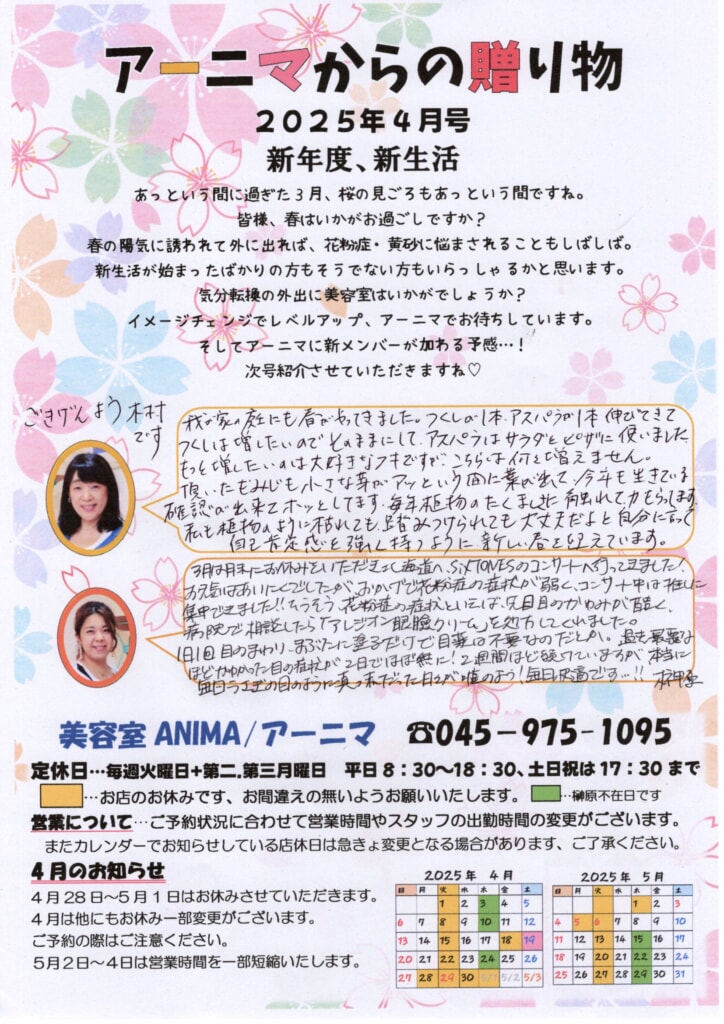 アーニマからの贈り物
2025年4月号
新年度、新生活
あっという間に過ぎた3月、桜の見ごろもあっという間ですね。
皆様、春はいかがお過ごしですか?
春の陽気に誘われて外に出れば、花粉症・黄砂に悩まされることもしばしば。
新生活が始まったばかりの方もそうでない方もいらっしゃるかと思います。
気分転換の外出に美容室はいかがでしょうか?
イメージチェンジでレベルアップ、アーニマでお待ちしています。
そしてアーニマに新メンバーが加わる予感…!
次号紹介させていただきますね♡
ごきげんよう木村
です
我が家の庭にも春がやってきました。つくしが1本、アスパラが1本伸びてきて
つくしは増したいのでそのままにして、アスパラはサラダとピザに使いました
もっと増したいのは大好きなフキですが、こちらは何とも増えません。
頂いたもみじも小さな芽がアッという間に葉が出て、今年も生きている
確認が出来てホッとしてます。毎年植物のたくましさに
私も植物のように枯れても踏みつけられても大丈夫だよと自分に言って
自己肯定感を強く持つように新しい春を迎えています。
3月は月末にお休みをいただき北海道へ、SixTONESのコンサートへ行ってきました!
お天気はあいにくでしたが、おかげで花粉症の症状が弱く、コンサート中は推しに
集中できました!!そうそう、花粉症の症状といえば、兄目のかゆみが酷く、
病院で相談したら「アレジオン眼瞼クリーム」を処方してくれました。
1日1回目のまわり、まぶたに塗るだけで目薬は不要なのだとか。
ほどかゆかった目の症状が2日でほぼ無に!2週間ほど経っていますが本当に
毎日うさぎの目のように真っ赤だった目が嘘のよう!毎日快適です…!! 榊原
美容室 ANIMA/アーニマ ☎045-975-1095
定休日…毎週火曜日+第二,第三月曜日 平日8:30~18:30、土日祝は17:30まで
…お店のお休みです、お間違えの無いようお願いいたします。 …榊原不在日です
営業について…ご予約状況に合わせて営業時間やスタッフの出勤時間の変更がございます。
またカレンダーでお知らせしている店休日は急きょ変更となる場合があります、ご了承ください。
4月のお知らせ
4月28日~5月1日はお休みさせていただきます。
4月は他にもお休み一部変更がございます。
ご予約の際はご注意ください。
5月2日~4日は営業時間を一部短縮いたします。
2025年 4月
日 月 火 水 木 金 土
1 2 3 4 5
6 7 8 9 10 11 12
13 14 15 16 17 18 19
20 21 22 23 24 25 26
27 28 29 30 5/1 5/2 5/3
2025年 5月
日 月 火 水 木 金 土
1 2 3
4 5 6 7 8 9 10
11 12 13 14 15 16 17
18 19 20 21 22 23 24
25 26 27 28 29 30 31